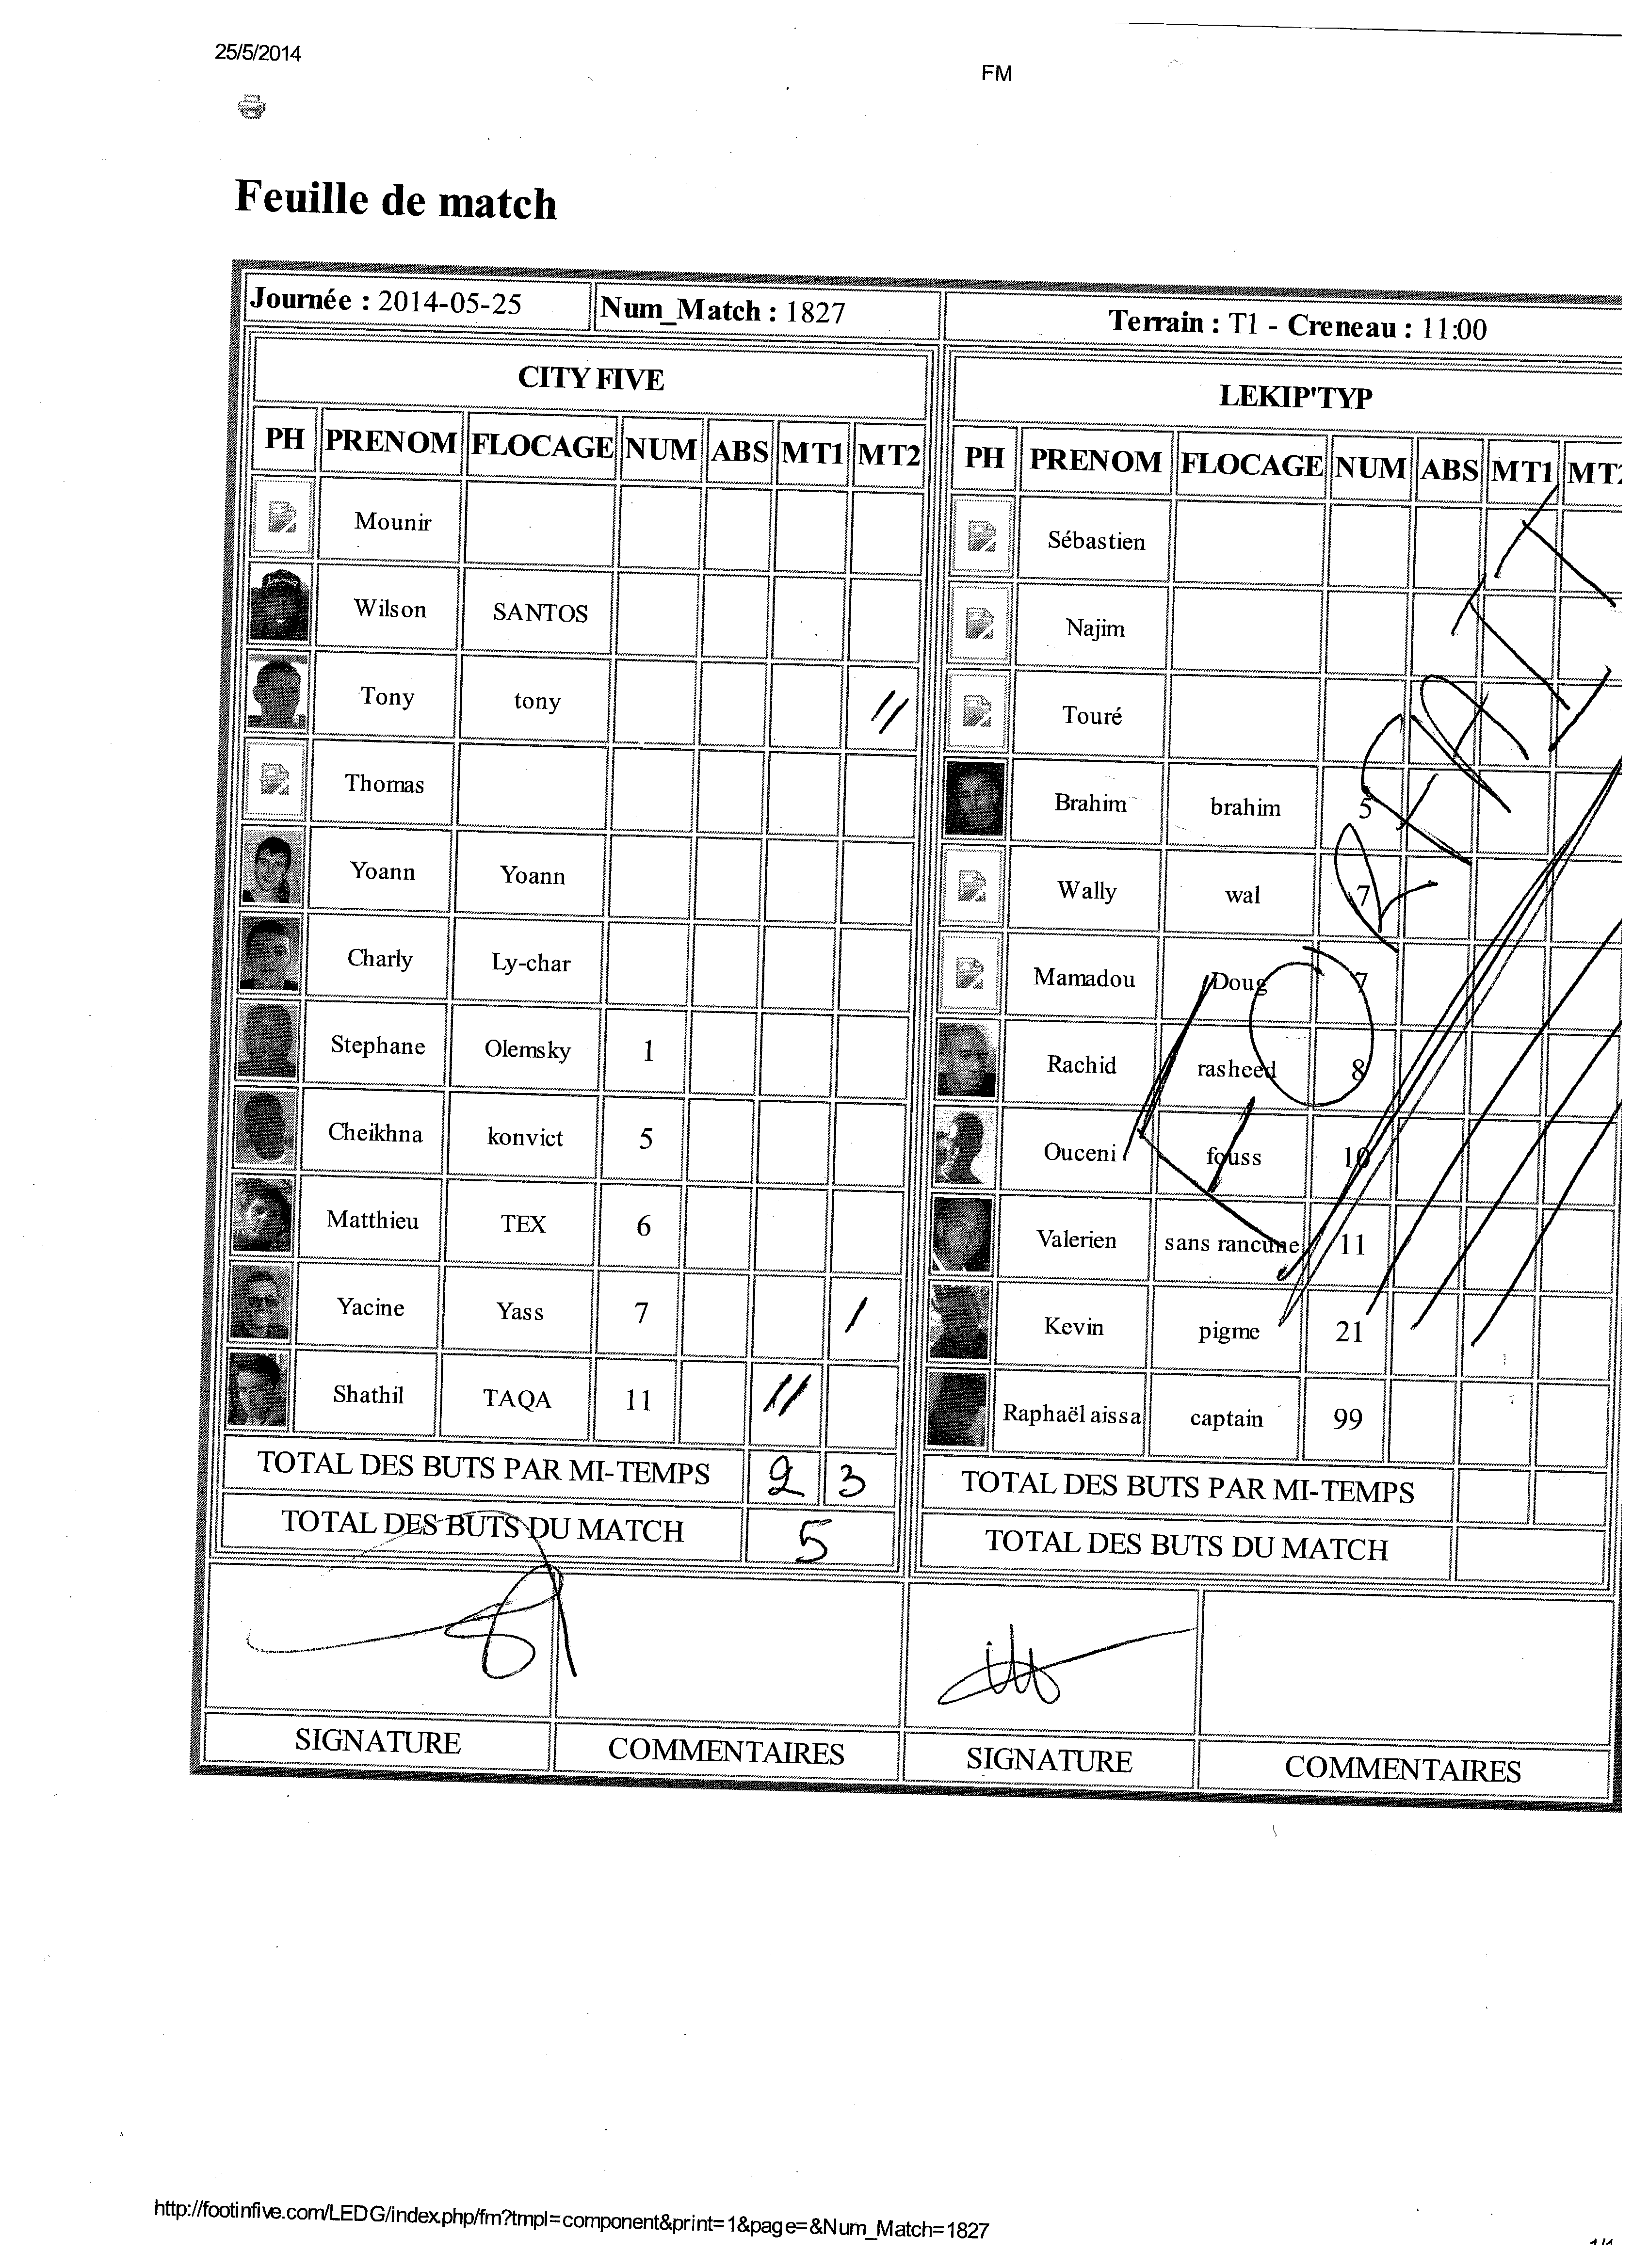 25/5/2014
FM
Feuille de match
Journée : 2014-05-25 Num_Match : 1827 Terrain : T1 - Creneau : 11:00
CITY FIVE
PH PRENOM FLOCAGE NUM ABS MT1 MT2
Mounir
Wilson SANTOS
Tony tony //
Thomas
Yoann Yoann
Charly Ly-char
Stephane Olemsky 1
Cheikhna konvict 5
Matthieu TEX 6
Yacine Yass 7 /
Shathil TAQA 11 //
TOTAL DES BUTS PAR MI-TEMPS 2 3
TOTAL DES BUTS DU MATCH 5
SIGNATURE COMMENTAIRES
LEKIP'TYP
PH PRENOM FLOCAGE NUM ABS MT1 MT2
Sébastien
Najim
Touré
Brahim brahim 5
Wally wal 7
Mamadou Doug 7
Rachid rasheed 8
Ouceni fouss 10
Valerien sans rancune 11
Kevin pigme 21
Raphaël aissa captain 99
FORFAIT
TOTAL DES BUTS PAR MI-TEMPS
TOTAL DES BUTS DU MATCH
SIGNATURE COMMENTAIRES
http://footinfive.com/LEDG/index.php/fm?tmpl=component&print=1&page=&Num_Match=1827